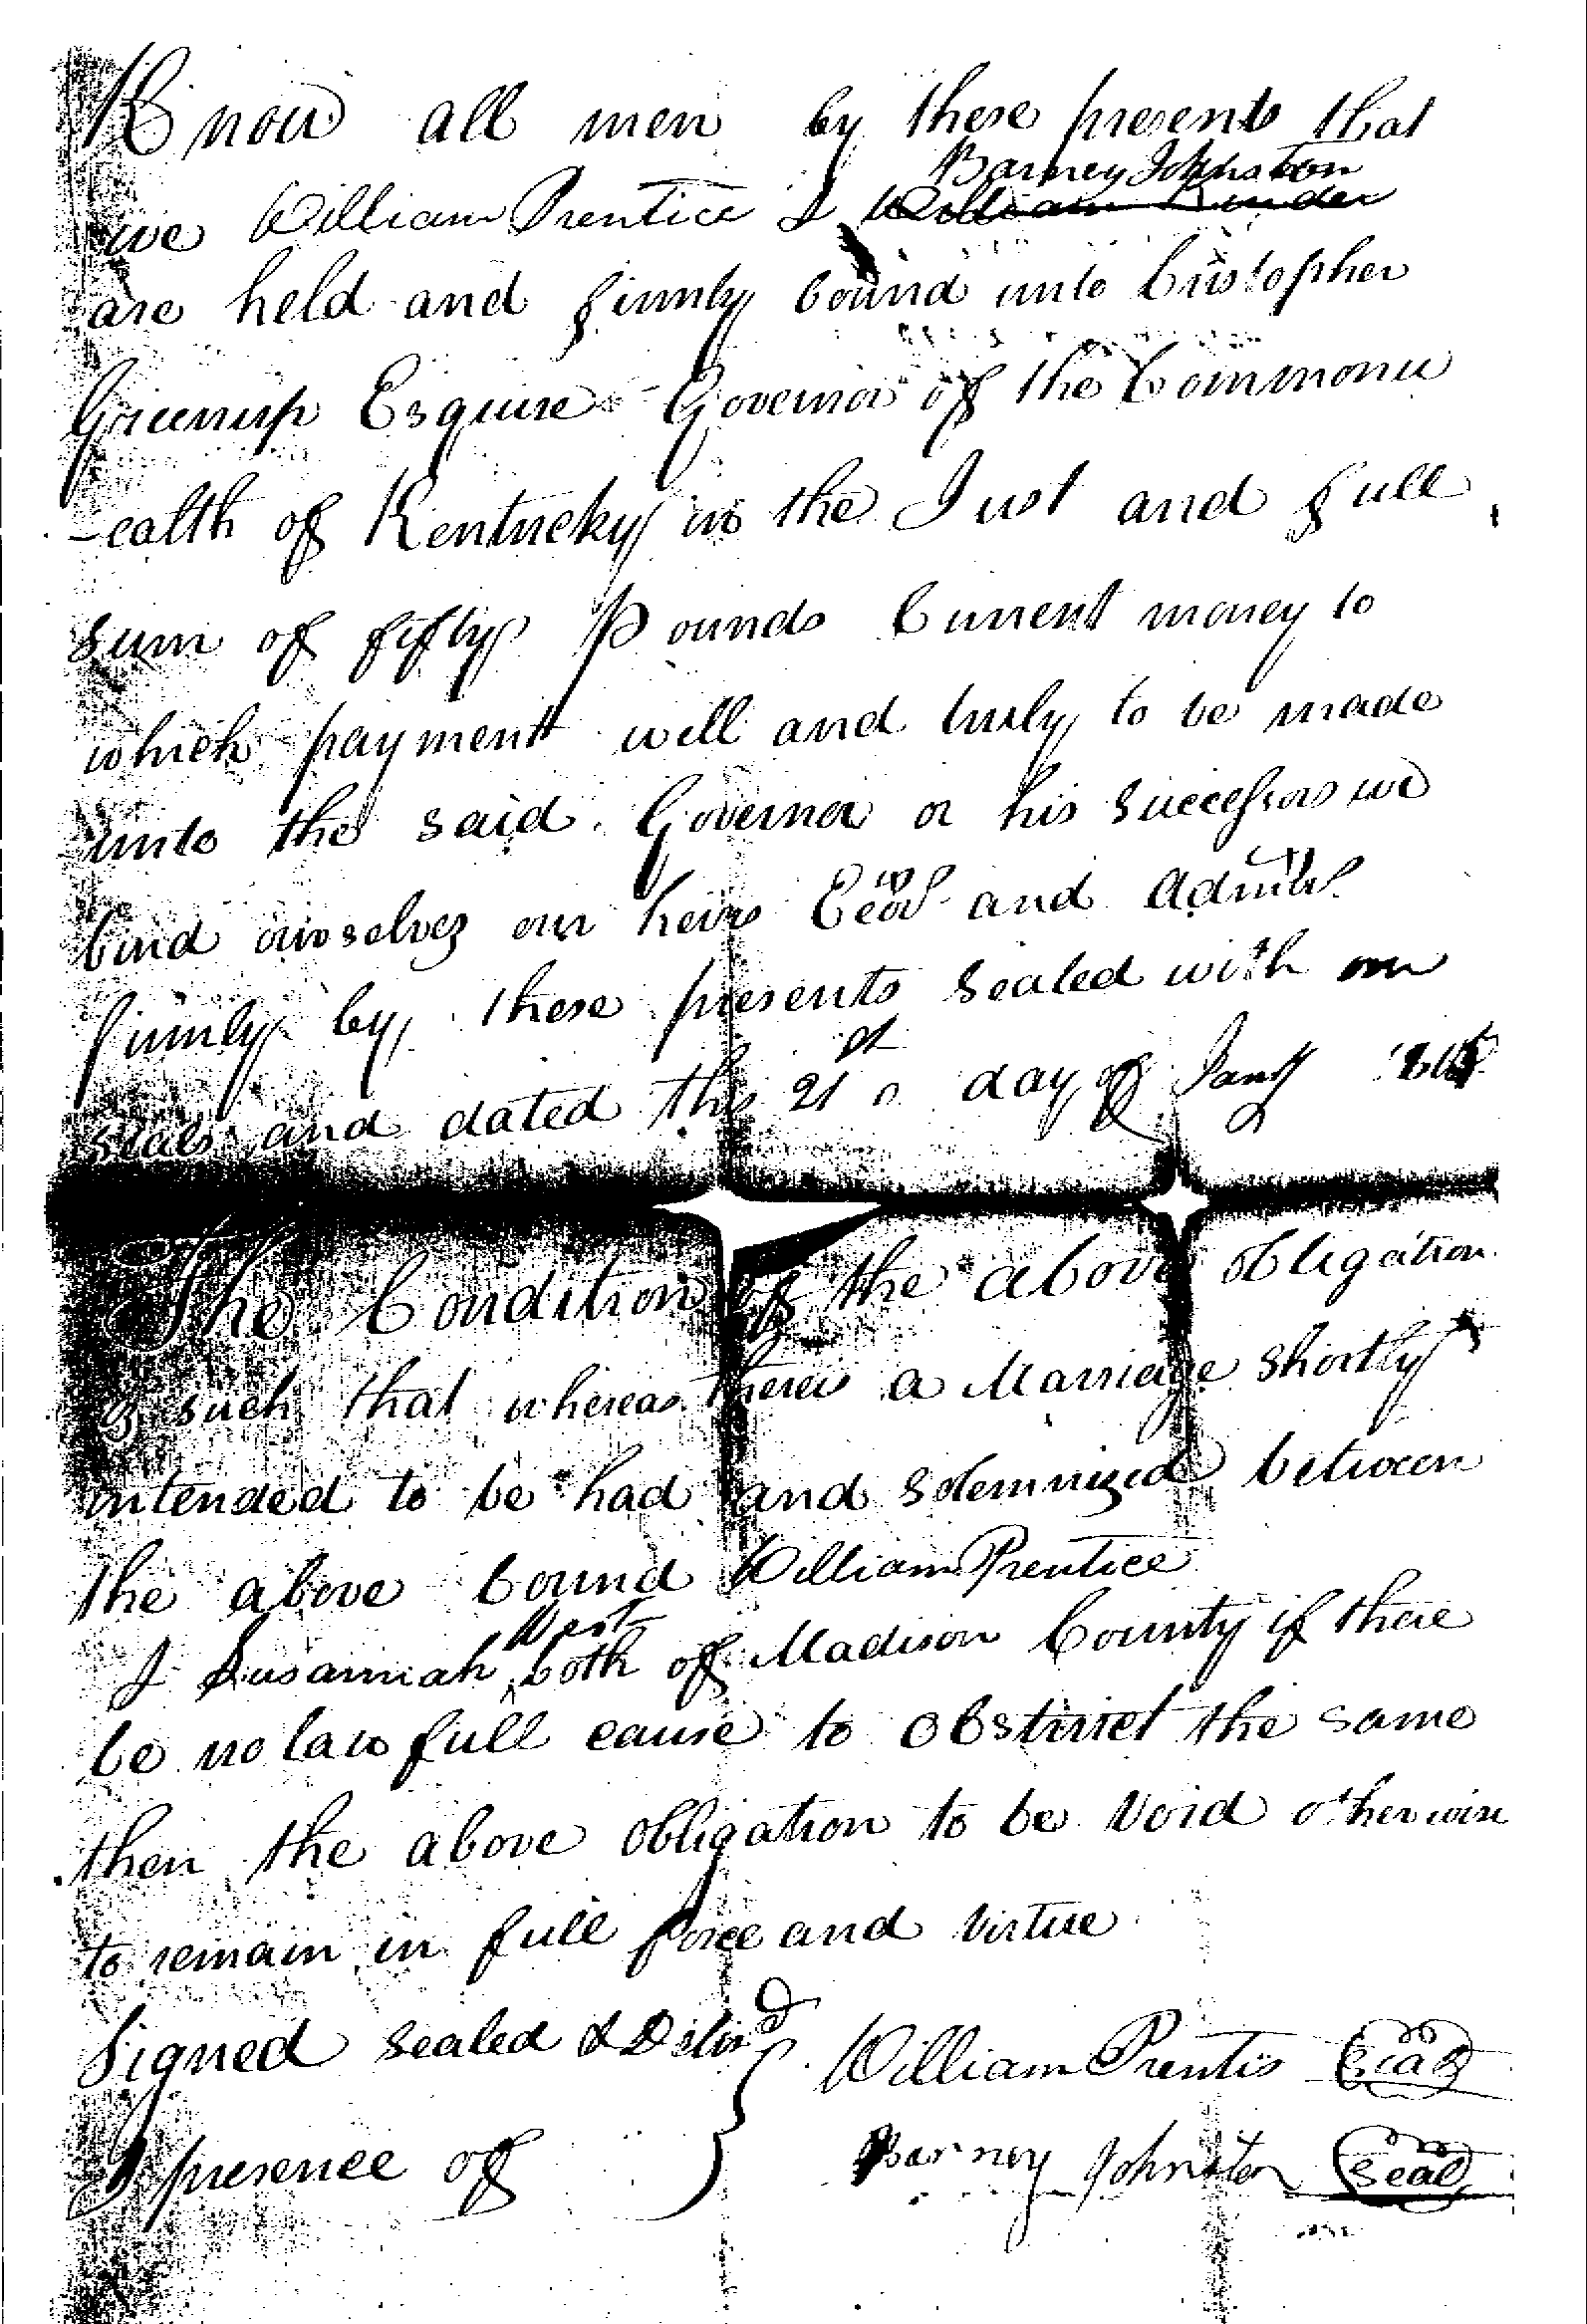 Know all men by these presents that
Barney Johnston
we William Prentice & William
are held and firmly bound unto Cristopher
Greenup Esquire Governor of the Commonw
-ealth of Kentucky in the Just and full
sum of fifty Pounds Current money to
which payment will and truly to be made
unto the said Governor or his Successors we
bind ourselves our heirs and
firmly by these presents Sealed with our
seals and dated this 21st day of Jany
The Condition of the above obligation
is such that whereas there is a Marriage Shortly
intended to be had and Solemnized between
the above bound William Prentice
West
& Susannah both of Madison County if there
be no law full cause to obstruct the same
then the above obligation to be Void otherwise
to remain in full force and Virtue
Signed Sealed & Delivd William Prentis Seal
I presence of Barney Johnston Seal